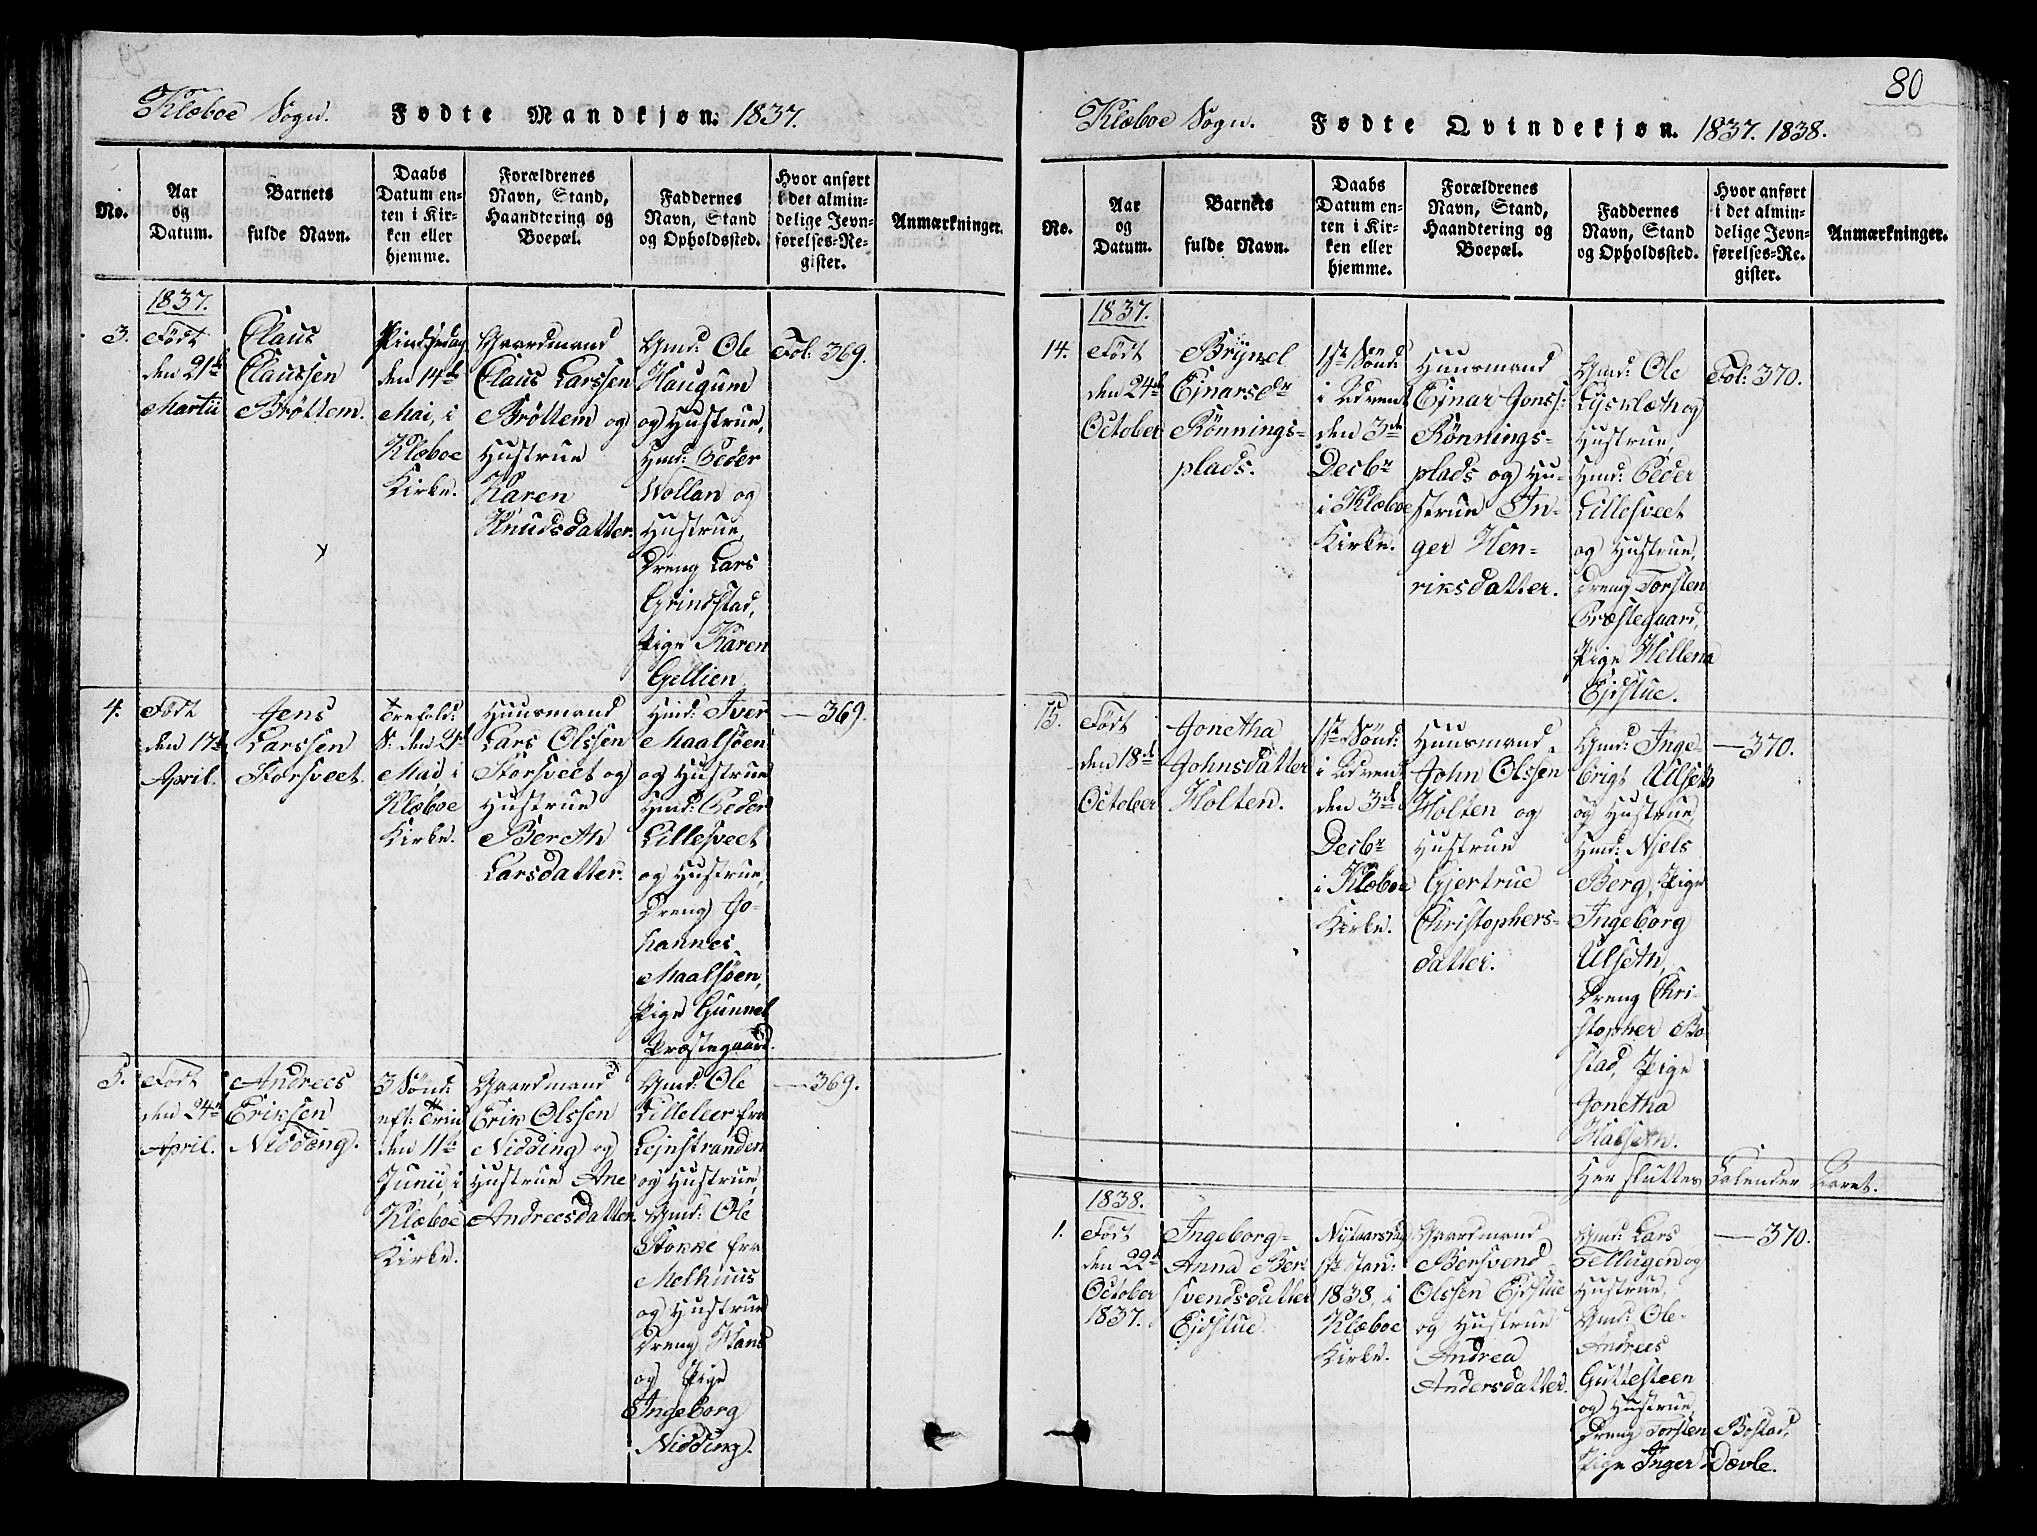 Klæboe Sogn. Fødte Mandkjøn. 1837.
No.
Aar
og
Datum.
Barnets
fulde Navn.
Daabs
Datum en-
ten i Kir-
ken eller
hjemme.
Forældrenes
Navn, Stand,
Haandtering og
Boepæl.
Faddernes
Navn, Stand
og Opholdssted.
Hvor anført
i det almin-
delige Jevn-
førelses-Re-
gister.
Anmærkninger.
1837.
3.
Født
den 21de
Martii
Claus
Claussen
Bröttem.
Pindsedag
den 14de
Mai, i
Klæboe
Kirke.
Gaardmand
Claus Larssen
Bröttem og
Hustrue
Karen
Knudsdatter.
Gmd: Ole
Haugum
og Hustrue,
Hmd: Peder
Wollan og
Hustrue,
Dreng Lars
Grindstad,
Pige Karen
Gellien
Fol: 369.
4.
Født
den 17de
April.
Jens
Larssen
Storsveet.
Trefold:
S: den 21de
Mai i
Klæboe
Kirke.
Huusmand
Lars Olssen
Storsveet og
Hustrue
Bereth
Larsdatter.
Hmd: Iver
Maalsöen
og Hustrue
Hmd: Peder
Lillesveet
og Hustrue,
Dreng Jo-
hannes
Maalsöen,
Pige Gunnel
Præstegaard.
— 369.
5.
Født
den 24de
April.
Andrees
Eriksen
Nidding.
3 Sönd:
eft: Trin
den 11te
Junii, i
Klæboe
Kirke.
Gaardmand
Erik Olssen
Nidding og
Hustrue Ane
Andreesdatter.
Gmd: Ole
Lilleleer fra
Lejnstranden
og Hustrue,
Gmd: Ole
Stokke fra
Melhuus
og Hustrue
Dreng Hans
og Pige
Ingeborg
Nidding.
— 369.
80
Klæboe Sogn. Fødte Qvindekjøn. 1837. 1838.
No.
Aar
og
Datum.
Barnets
fulde Navn.
Daabs
Datum en-
ten i Kir-
ken eller
hjemme.
Forældrenes
Navn, Stand,
Haandtering og
Boepæl.
Faddernes
Navn, Stand
og Opholdssted.
Hvor anført
i det almin-
delige Jevn-
førelses-Re-
gister.
Anmærkninger.
1837.
14.
Født
den 24de
October
Brynel
Ejnarsdr
Rönnings-
plads.
1ste Sönd:
i Advent
den 3de
Decbr
i Klæboe
Kirke.
Huusmand
Ejnar Jonss:
Rönnings-
plads og Hu-
strue In-
ger Hen-
riksdatter.
Gmd: Ole
Lysklæth og
Hustrue,
Hmd: Peder
Lillesveet
og Hustrue,
Dreng Torsten
Præstegaard,
Pige Hellena
Ejdstue.
Fol: 370.
15.
Født
den 18de
October
Jonetha
Johnsdatter
Holten.
1ste Sönd:
i Advent
den 3de
Decbr
i Klæboe
Kirke.
Huusmand
John Olssen
Holten og
Hustrue
Gjertrue
Christophers-
datter.
Gmd: Inge-
brigt Ulseth
og Hustrue,
Hmd: Niels
Berg, Pige
Ingeborg
Ulseth,
Dreng Chri-
stopher Bo-
stad, Pige
Jonetha
Halseth.
— 370.
Her sluttes Calender Aaret.
1838.
1.
Født
den 22de
October
1837.
Ingeborg-
Anna Ber-
svendsdatter
Ejdstue.
Nytaarsdag
1ste Jan:
1838, i
Klæboe
Kirke.
Gaardmand
Bersvend
Olssen Ejdstue
og Hustrue
Andrea
Andersdatter.
Gmd: Lars
Tellugen og
Hustrue,
Gmd: Ole-
Andrees
Guttesteen
og Hustrue,
Dreng Torsten Bostad,
Pige Inger Dævle.
— 370.